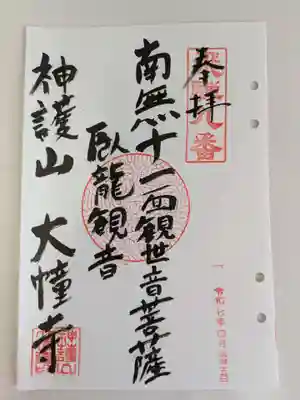 奉拝
九番
南無十一面観世音菩薩
臥龍観音
神護山 大幢寺